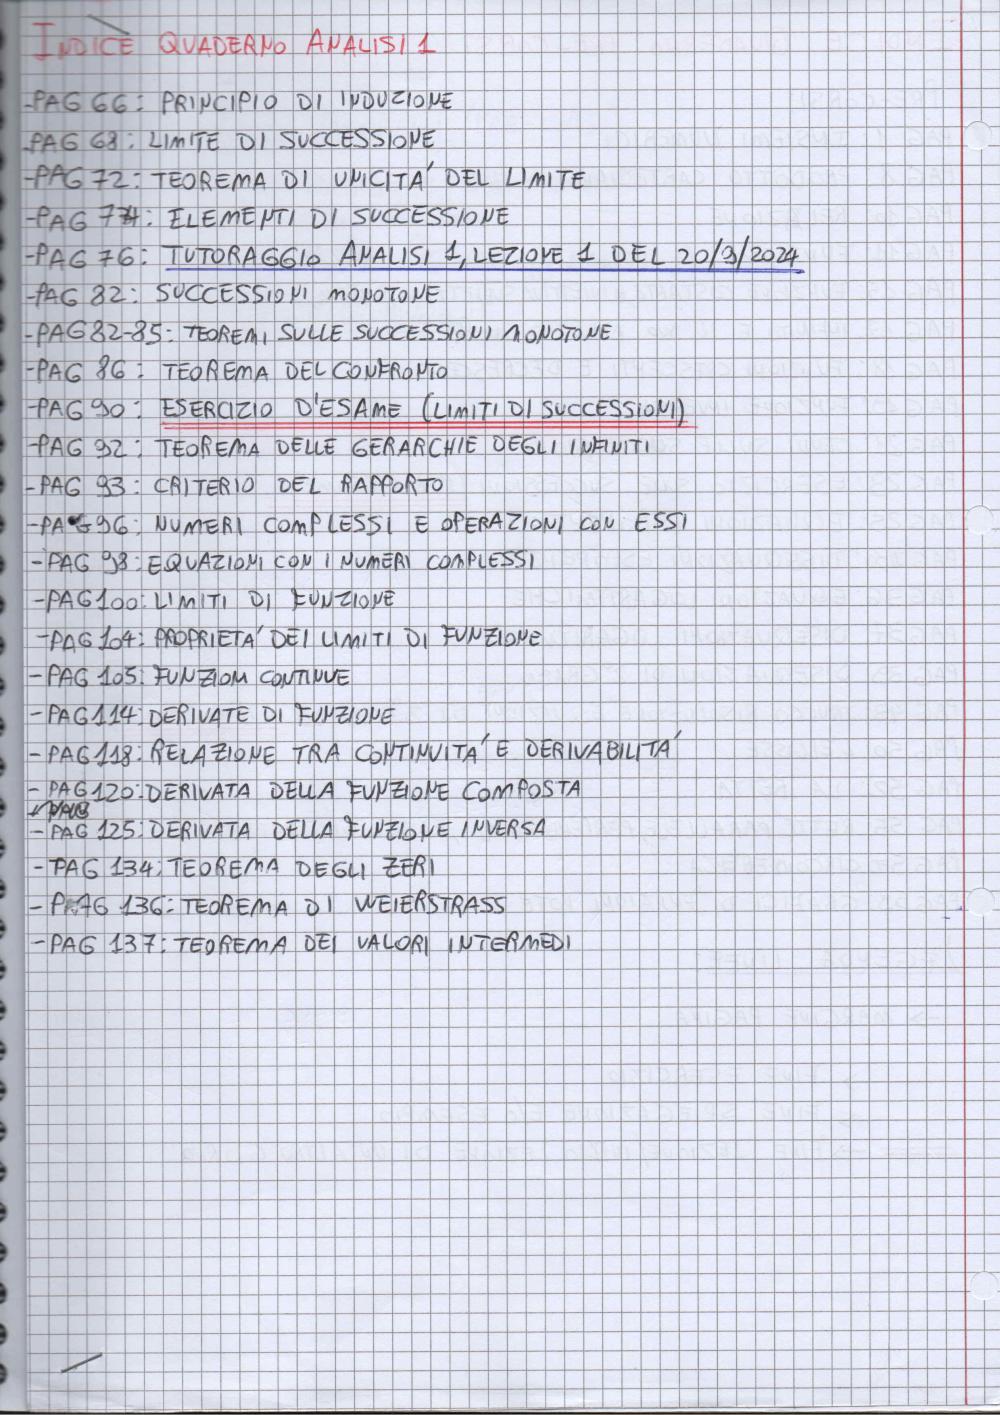 INDICE QUADERNO ANALISI 1
-PAG 66: PRINCIPIO DI INDUZIONE
-PAG 68: LIMITE DI SUCCESSIONE
-PAG 72: TEOREMA DI UNICITA' DEL LIMITE
-PAG 74: ELEMENTI DI SUCCESSIONE
-PAG 76: TUTORAGGIO ANALISI 1, LEZIONE 1 DEL 20/3/2024
-PAG 82: SUCCESSIONI MONOTONE
-PAG 82-85: TEOREMI SULLE SUCCESSIONI MONOTONE
-PAG 86: TEOREMA DEL CONFRONTO
-PAG 90: ESERCIZIO D'ESAME (LIMITI DI SUCCESSIONI)
-PAG 92: TEOREMA DELLE GERARCHIE DEGLI INFINITI
-PAG 93: CRITERIO DEL RAPPORTO
-PAG 96: NUMERI COMPLESSI E OPERAZIONI CON ESSI
-PAG 98: EQUAZIONI CON I NUMERI COMPLESSI
-PAG 100: LIMITI DI FUNZIONE
-PAG 104: PROPRIETA' DEI LIMITI DI FUNZIONE
-PAG 105: FUNZIONI CONTINUE
-PAG 114: DERIVATE DI FUNZIONE
-PAG 118: RELAZIONE TRA CONTINUITA' E DERIVABILITA'
-PAG 120: DERIVATA DELLA FUNZIONE COMPOSTA
-PAG 125: DERIVATA DELLA FUNZIONE INVERSA
-PAG 134: TEOREMA DEGLI ZERI
-PAG 136: TEOREMA DI WEIERSTRASS
-PAG 137: TEOREMA DEI VALORI INTERMEDI